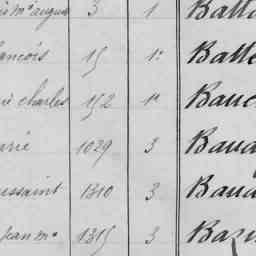 is mᵉ august 3 1 Batt
ançois 15 1º Batte
ié charles 152 1º Bauc
arie 1029 3 Bauc
ussaint 1310 3 Baud
Jean mᵉ 1315 3 Bazi